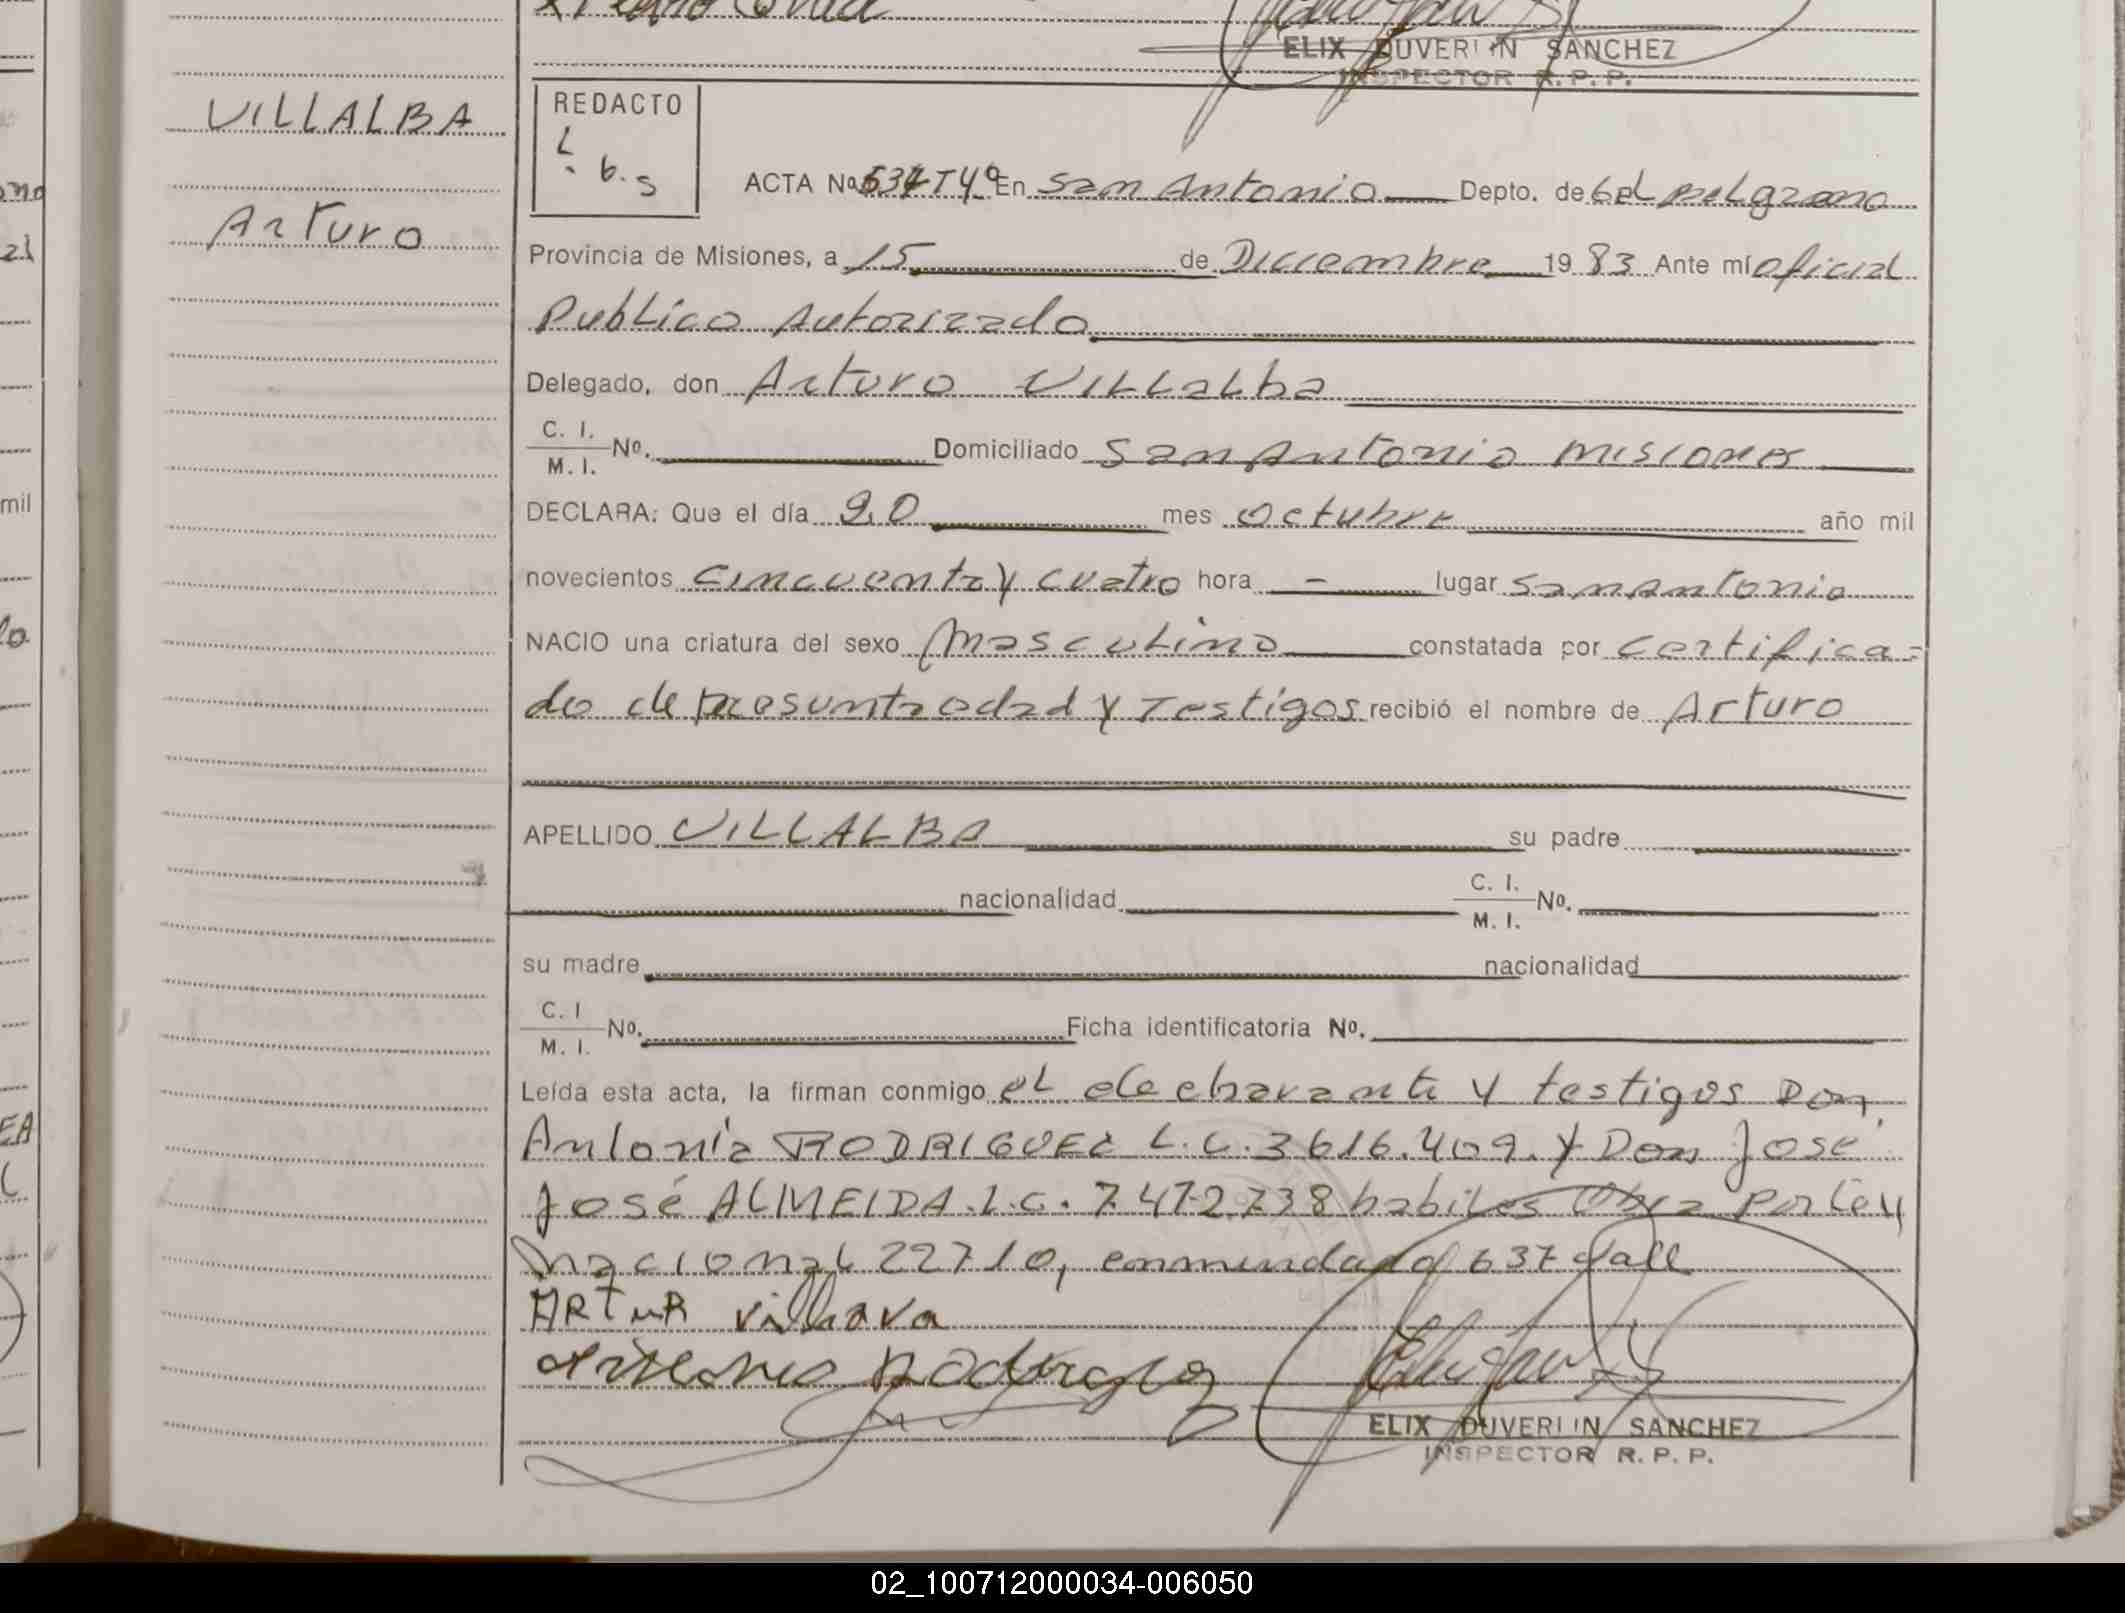 ELIX DUVERLIN SANCHEZ
INSPECTOR R. P. P.
VILLALBA
Arturo
REDACTO
L. b. s
ACTA No. 637 T4º En San Antonio Depto. de Gel Belgrano
Provincia de Misiones, a 15 de Diciembre 19 83 Ante mí oficial
Publico Autorizado
Delegado, don Arturo VILLalba
C. I.
M. I. Nº. Domiciliado San Antonio Misiones
DECLARA: Que el día 20 mes octubre año mil
novecientos Cincuenta y cuatro hora - lugar San Antonio
NACIO una criatura del sexo Masculino constatada por certifica-
do de presunta edad y Testigos recibió el nombre de Arturo
APELLIDO VILLALBA su padre
nacionalidad C. I.
M. I. Nº.
su madre nacionalidad
C. I
M. I. Nº. Ficha identificatoria Nº.
Leída esta acta, la firman conmigo el declarante y testigos Don
Antonia RODRIGUEZ L.C. 3616.409. y Don José
José ALMEIDA.L.C. 7.472.738 habiles Obra Por Ley
Nacional 22710, enmendado 637 Vall
ARTuR villava
ELIX DUVERLIN SANCHEZ
INSPECTOR R. P. P.
mil
EA
02_100712000034-006050